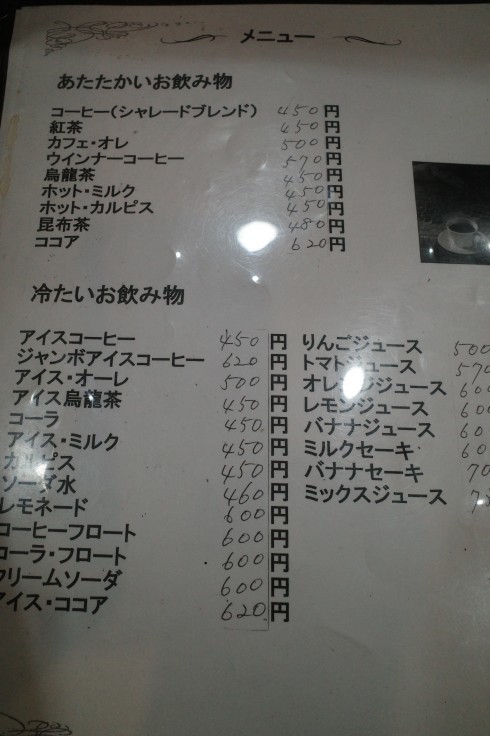 メニュー
あたたかいお飲み物
コーヒー(シャレードブレンド) 450円
紅茶 450円
カフェ・オレ 500円
ウインナーコーヒー 570円
烏龍茶 450円
ホット・ミルク 450円
ホット・カルピス 450円
昆布茶 480円
ココア 620円
冷たいお飲み物
アイスコーヒー 450円
ジャンボアイスコーヒー 620円
アイス・オーレ 500円
アイス烏龍茶 450円
コーラ 450円
アイス・ミルク 450円
カルピス 450円
ソーダ水 460円
レモネード 600円
コーヒーフロート 600円
コーラ・フロート 600円
クリームソーダ 600円
アイス・ココア 620円
りんごジュース 500
トマトジュース 570
オレンジジュース 600
レモンジュース 600
バナナジュース 600
ミルクセーキ 600
バナナセーキ 70
ミックスジュース